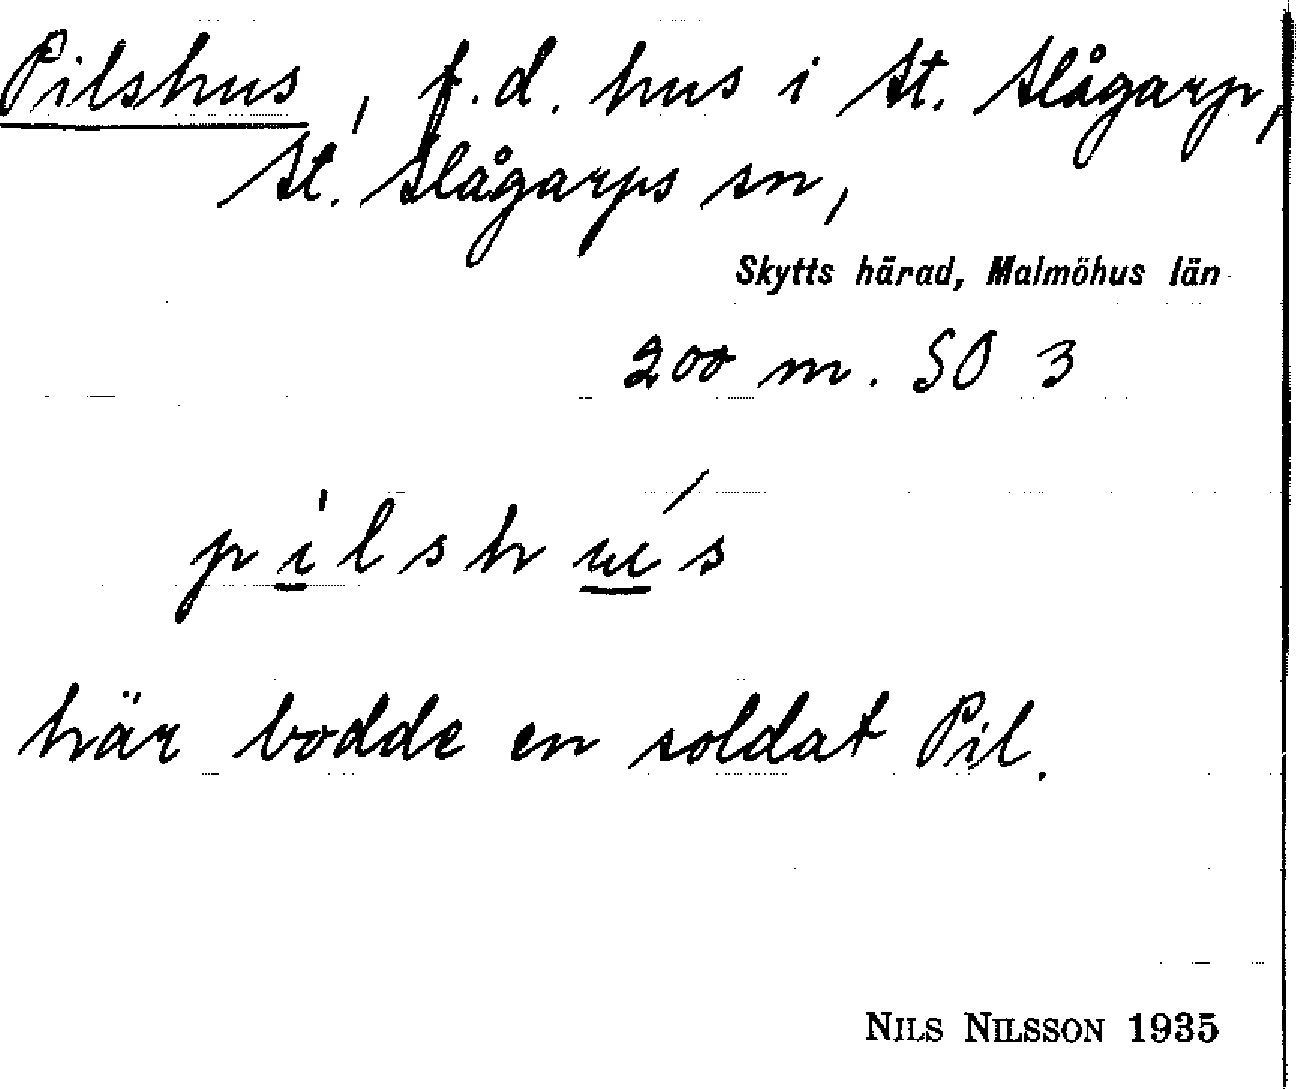 Pilshus, f.d. hus i St. Slågarp,
St. Slågarps sn,
Skytts härad, Malmöhus län
200 m. SO 3
pilshús
här bodde en soldat Pil.
NILS NILSSON 1935